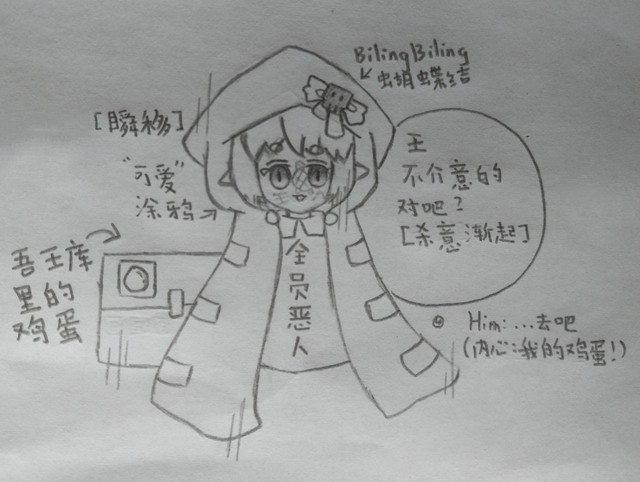 BilingBiling
虫胡蝶结
[瞬移]
"可爱"
涂鸦
王
不介意的
对吧?
[杀意渐起]
吾王库
里的
鸡蛋
全
员
恶
人
Him:...去吧
(内心:我的鸡蛋!)